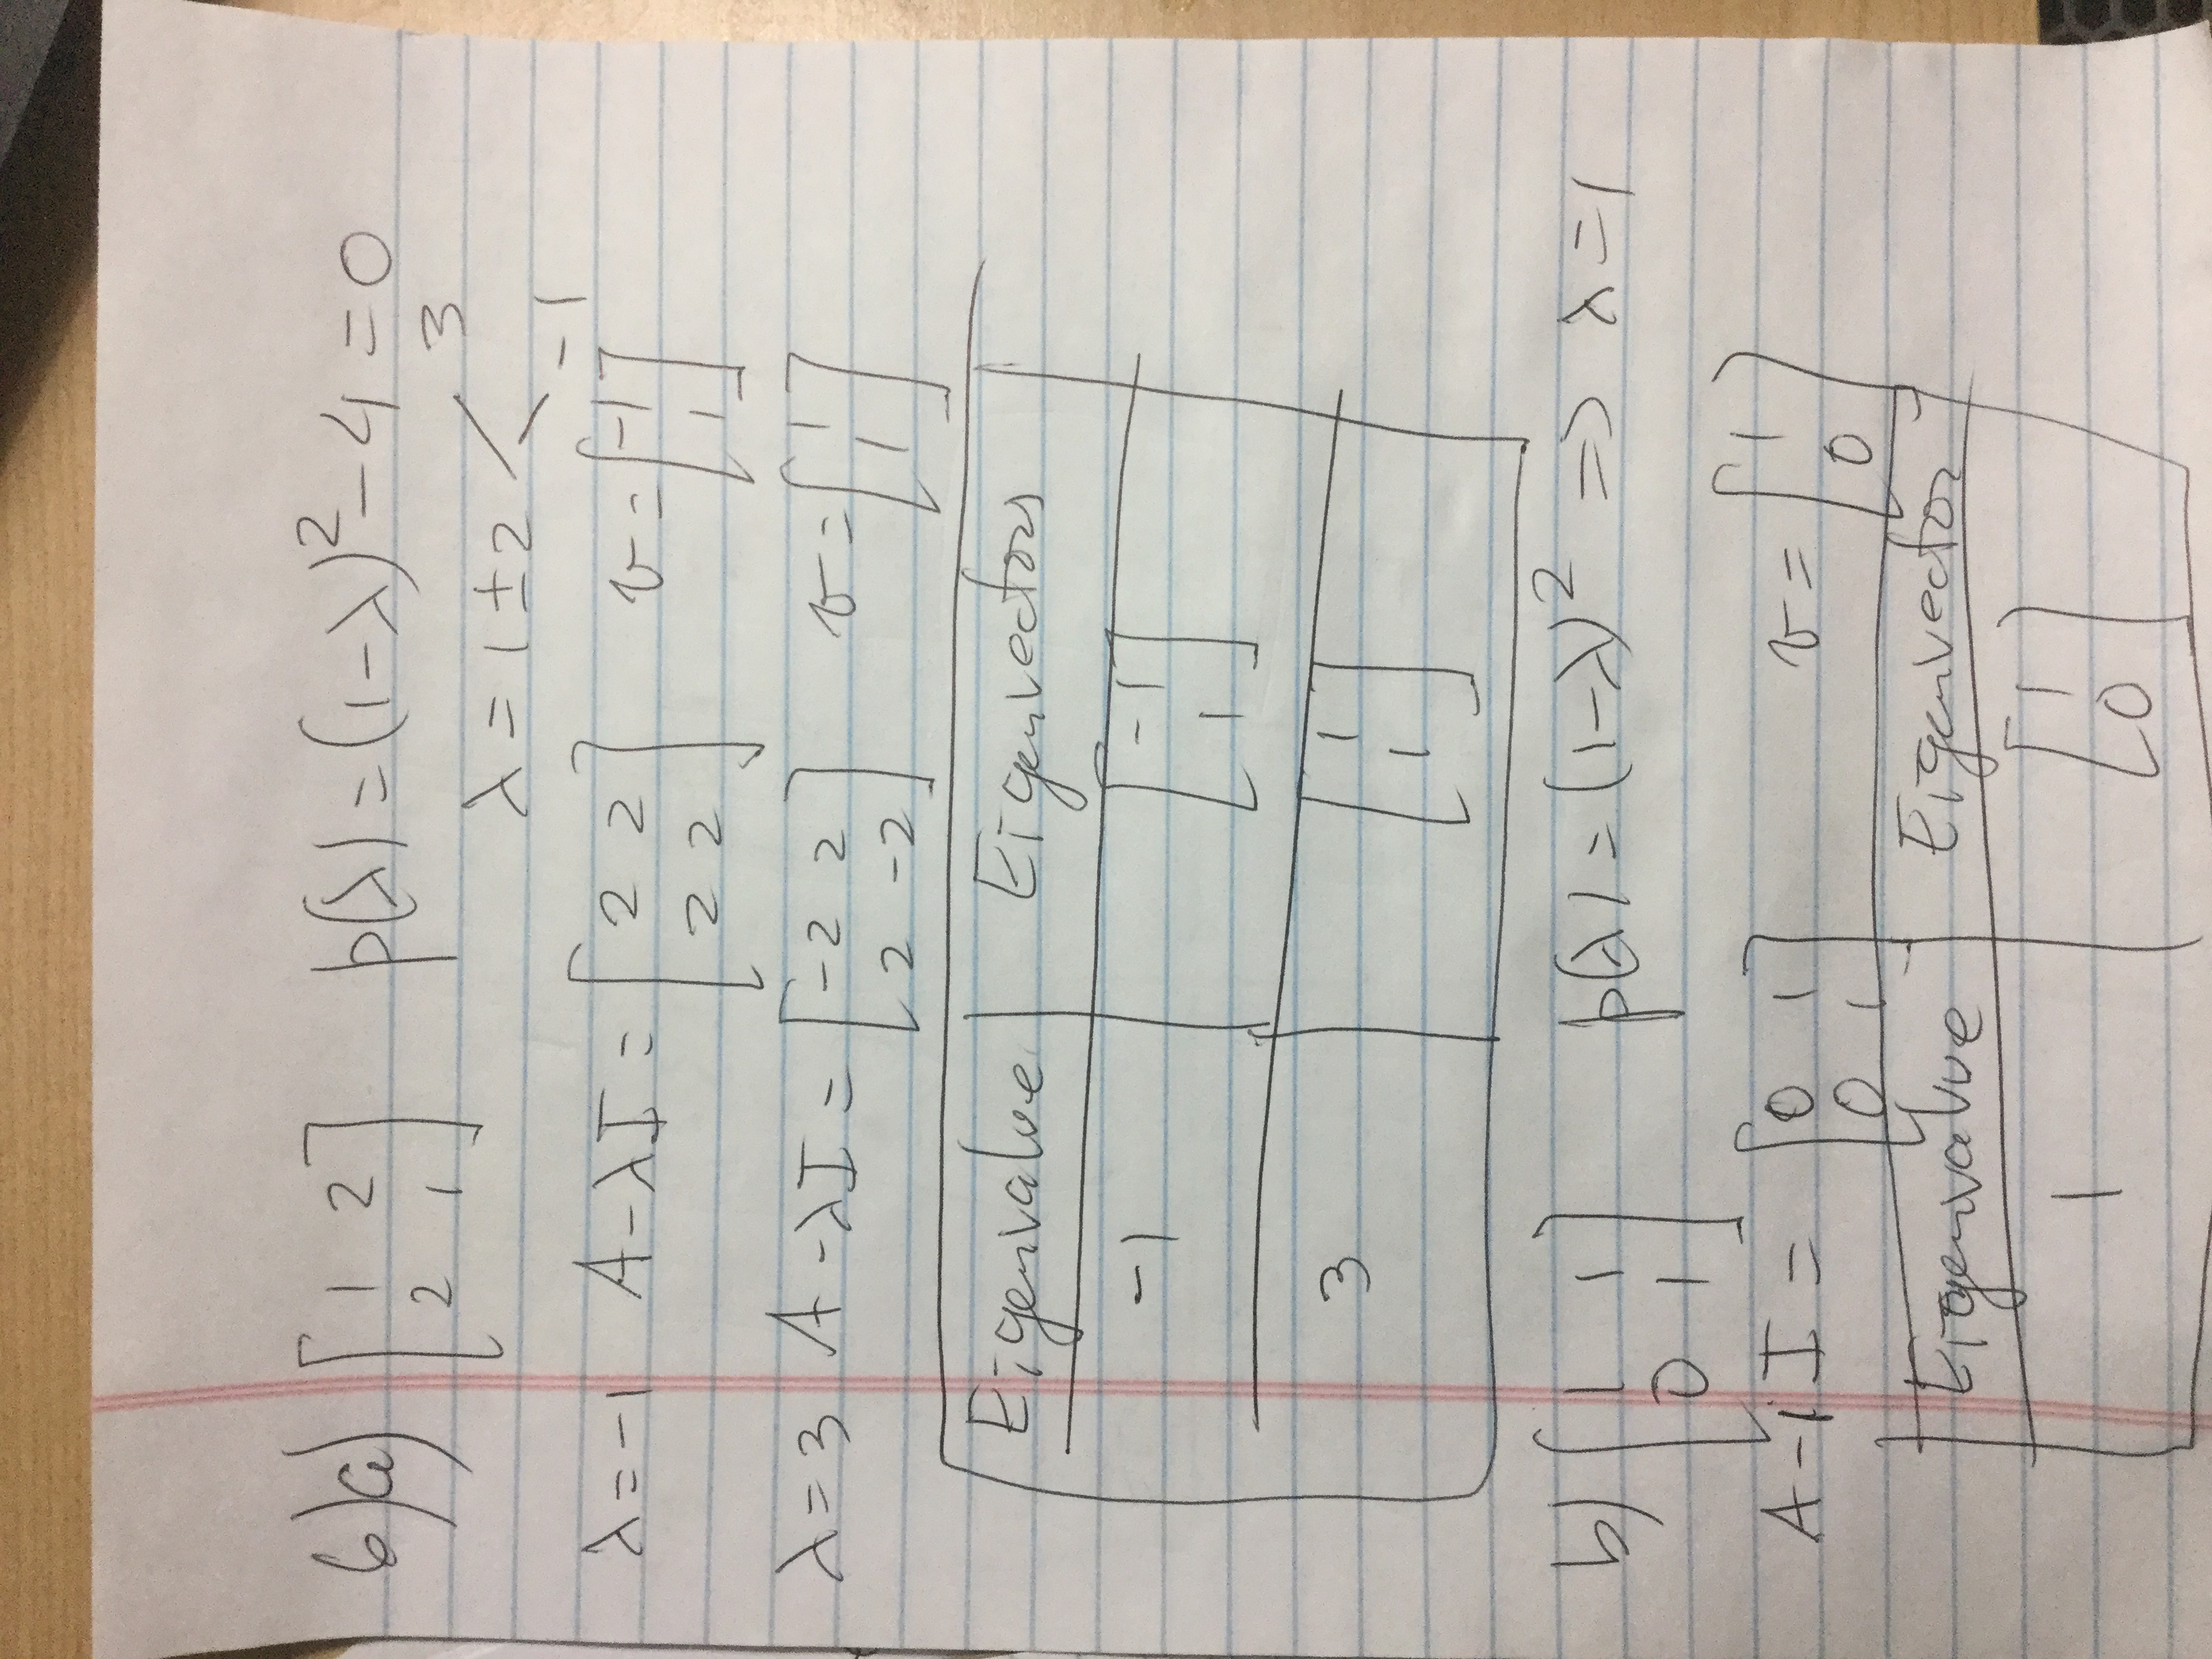 6)a) [1 2; 2 1] p(λ)=(1-λ)²-4=0
λ=1±2 < 3, -1
λ=-1 A-λI=[2 2; 2 2] v=[-1; 1]
λ=3 A-λI=[-2 2; 2 -2] v=[1; 1]
Eigenvalue Eigenvectors
-1 [-1; 1]
3 [1; 1]
b) [1 1; 0 1] p(λ)=(1-λ)² => λ=1
A-1I=[0 1; 0 1] v=[1; 0]
Eigenvalue Eigenvector
1 [1; 0]